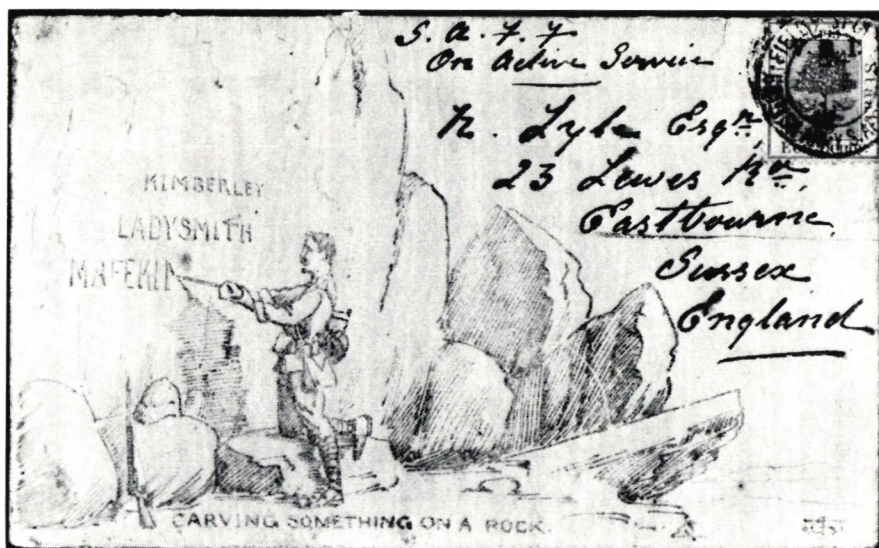 S. A. F. F
On Active Service
N. Lyle Esqr.
23 Lewes Rd.
Eastbourne
Sussex
England
KIMBERLEY
LADYSMITH
MAFEKIN
CARVING SOMETHING ON A ROCK.